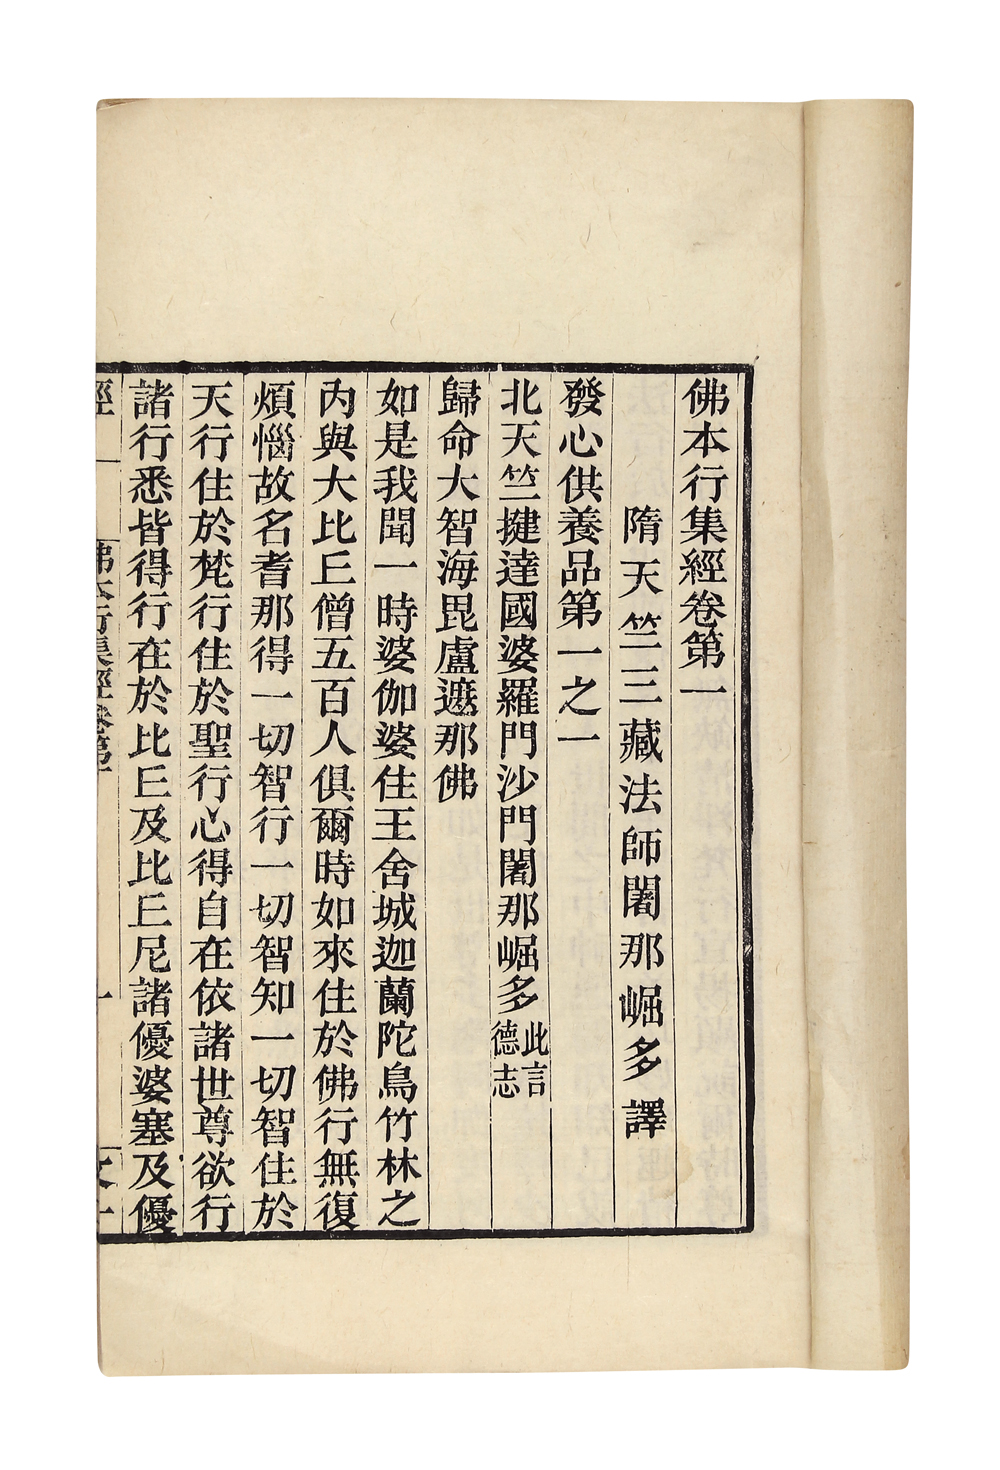 佛本行集經卷第一
隋天竺三藏法師闍那崛多譯
發心供養品第一之一
北天竺揵達國婆羅門沙門闍那崛多此言德志
歸命大智海毘盧遮那佛
如是我聞一時婆伽婆住王舍城迦蘭陀鳥竹林之
內與大比丘僧五百人俱爾時如來住於佛行無復
煩惱故名耆那得一切智行一切智知一切智住於
天行住於梵行住於聖行心得自在依諸世尊欲行
諸行悉皆得行在於比丘及比丘尼諸優婆塞及優
經一 佛本行集經卷第一